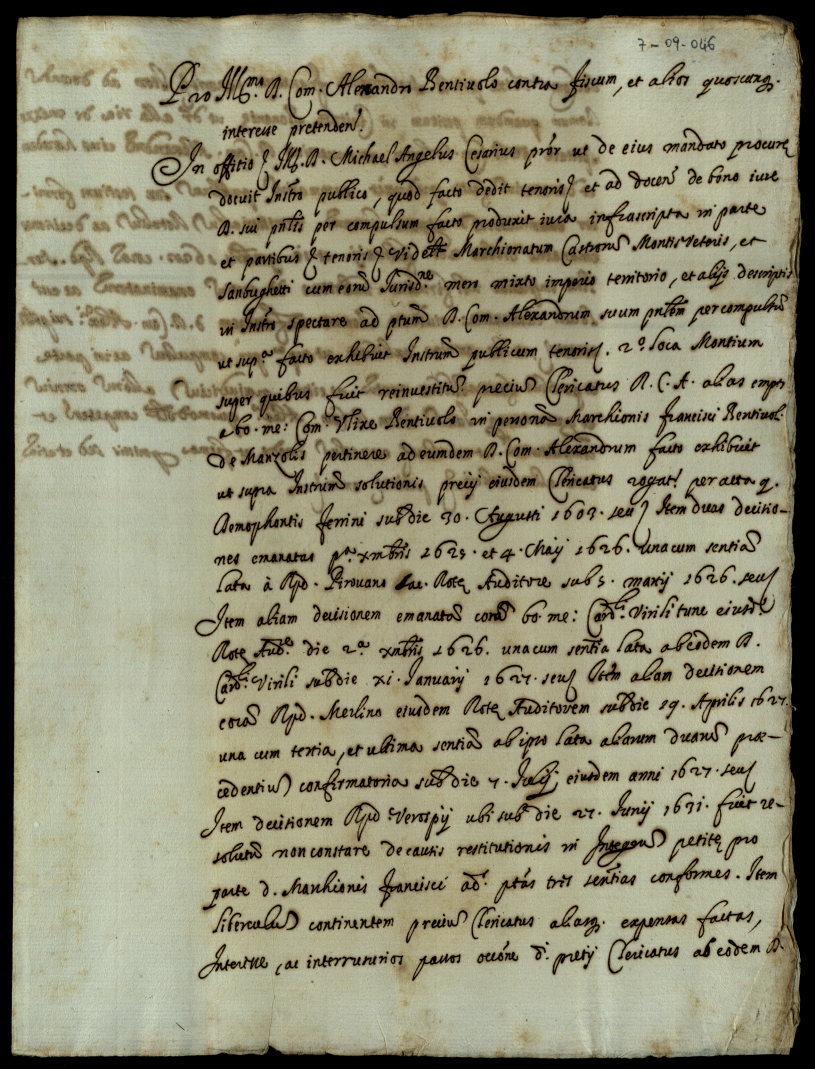 7-09-046
Pro Ill.mo D. Com. Alexandro Bentivolo contra fiscum, et alios quoscunq.
interesse pretenden.
In offitio Ill. D. Michael Angelus Cesarius pror ut de eius mandato procure
docuit Instro publico, quod facto dedit tenoris et ad docen de bono iure
D. sui pnlis per compulsum facto produxit iura infrascripta in parte
et partibus tenoris Vidélt Marchionatum Castrorũ Montis Veteris, et
Sanbughetti cum eorũ Jurisd.ne mero mixto imperio territorio, et alijs descriptis
in Instro spectare ad ptum D. Com. Alexandrum suum pnlem per compulsũ
ut sup.a facto exhibuit Instrum publicum tenoris. 2.o loca Montium
super quibus fuit reinvestitũ preciũ Clericatus R. C. A. alias empt
a bo. me: Com. Vlixe Bentivolo in personã Marchionis Francisci Bentivoli
de Manzolis pertinere ad eumdem D. Com. Alexandrum facto exhibuit
ut supra Instrum solutionis precij eiusdem Clericatus rogat. per acta q.
Demophontis ferrini sub die 30. Augusti 1603. seu Item duas decisio-
nes emanatas p.a xmbris 1625. et 4. Maij 1626. unacum sentia
lata à Rpd. Pirovano Sac. Rote Auditore sub 5. martij 1626. seu
Item aliam decisionem emanatã corã bo. me: Card. Virili tunc eiusd.
Rote Aud.e die 2.a xmbris 1626. unacum sentia lata ab eodem D.
Card. Virili sub die xi. Januarij 1627. seu Item aliam decisionem
corã Rpd. Merlino eiusdem Rote Auditorem sub die 19. Aprilis 1627.
una cum tertia, et ultima sentiã ab ipso lata aliarum duarũ præ-
cedentiũ confirmatoria sub die 7. Julij eiusdem anni 1627. seu
Item decisionem Rpd Verospij ubi sub die 27. Junij 1631. fuit re-
solutũ non constare de causis restitutionis in Integrũ petite pro
parte d. Marchionis francisci ad. ptas tres sentias conformes. Item
liberculũ continentem preciũ Clericatus aliasq. expensas factas,
Interesse, ac interusurios passos occõne d. pretij Clericatus ab eodem D.